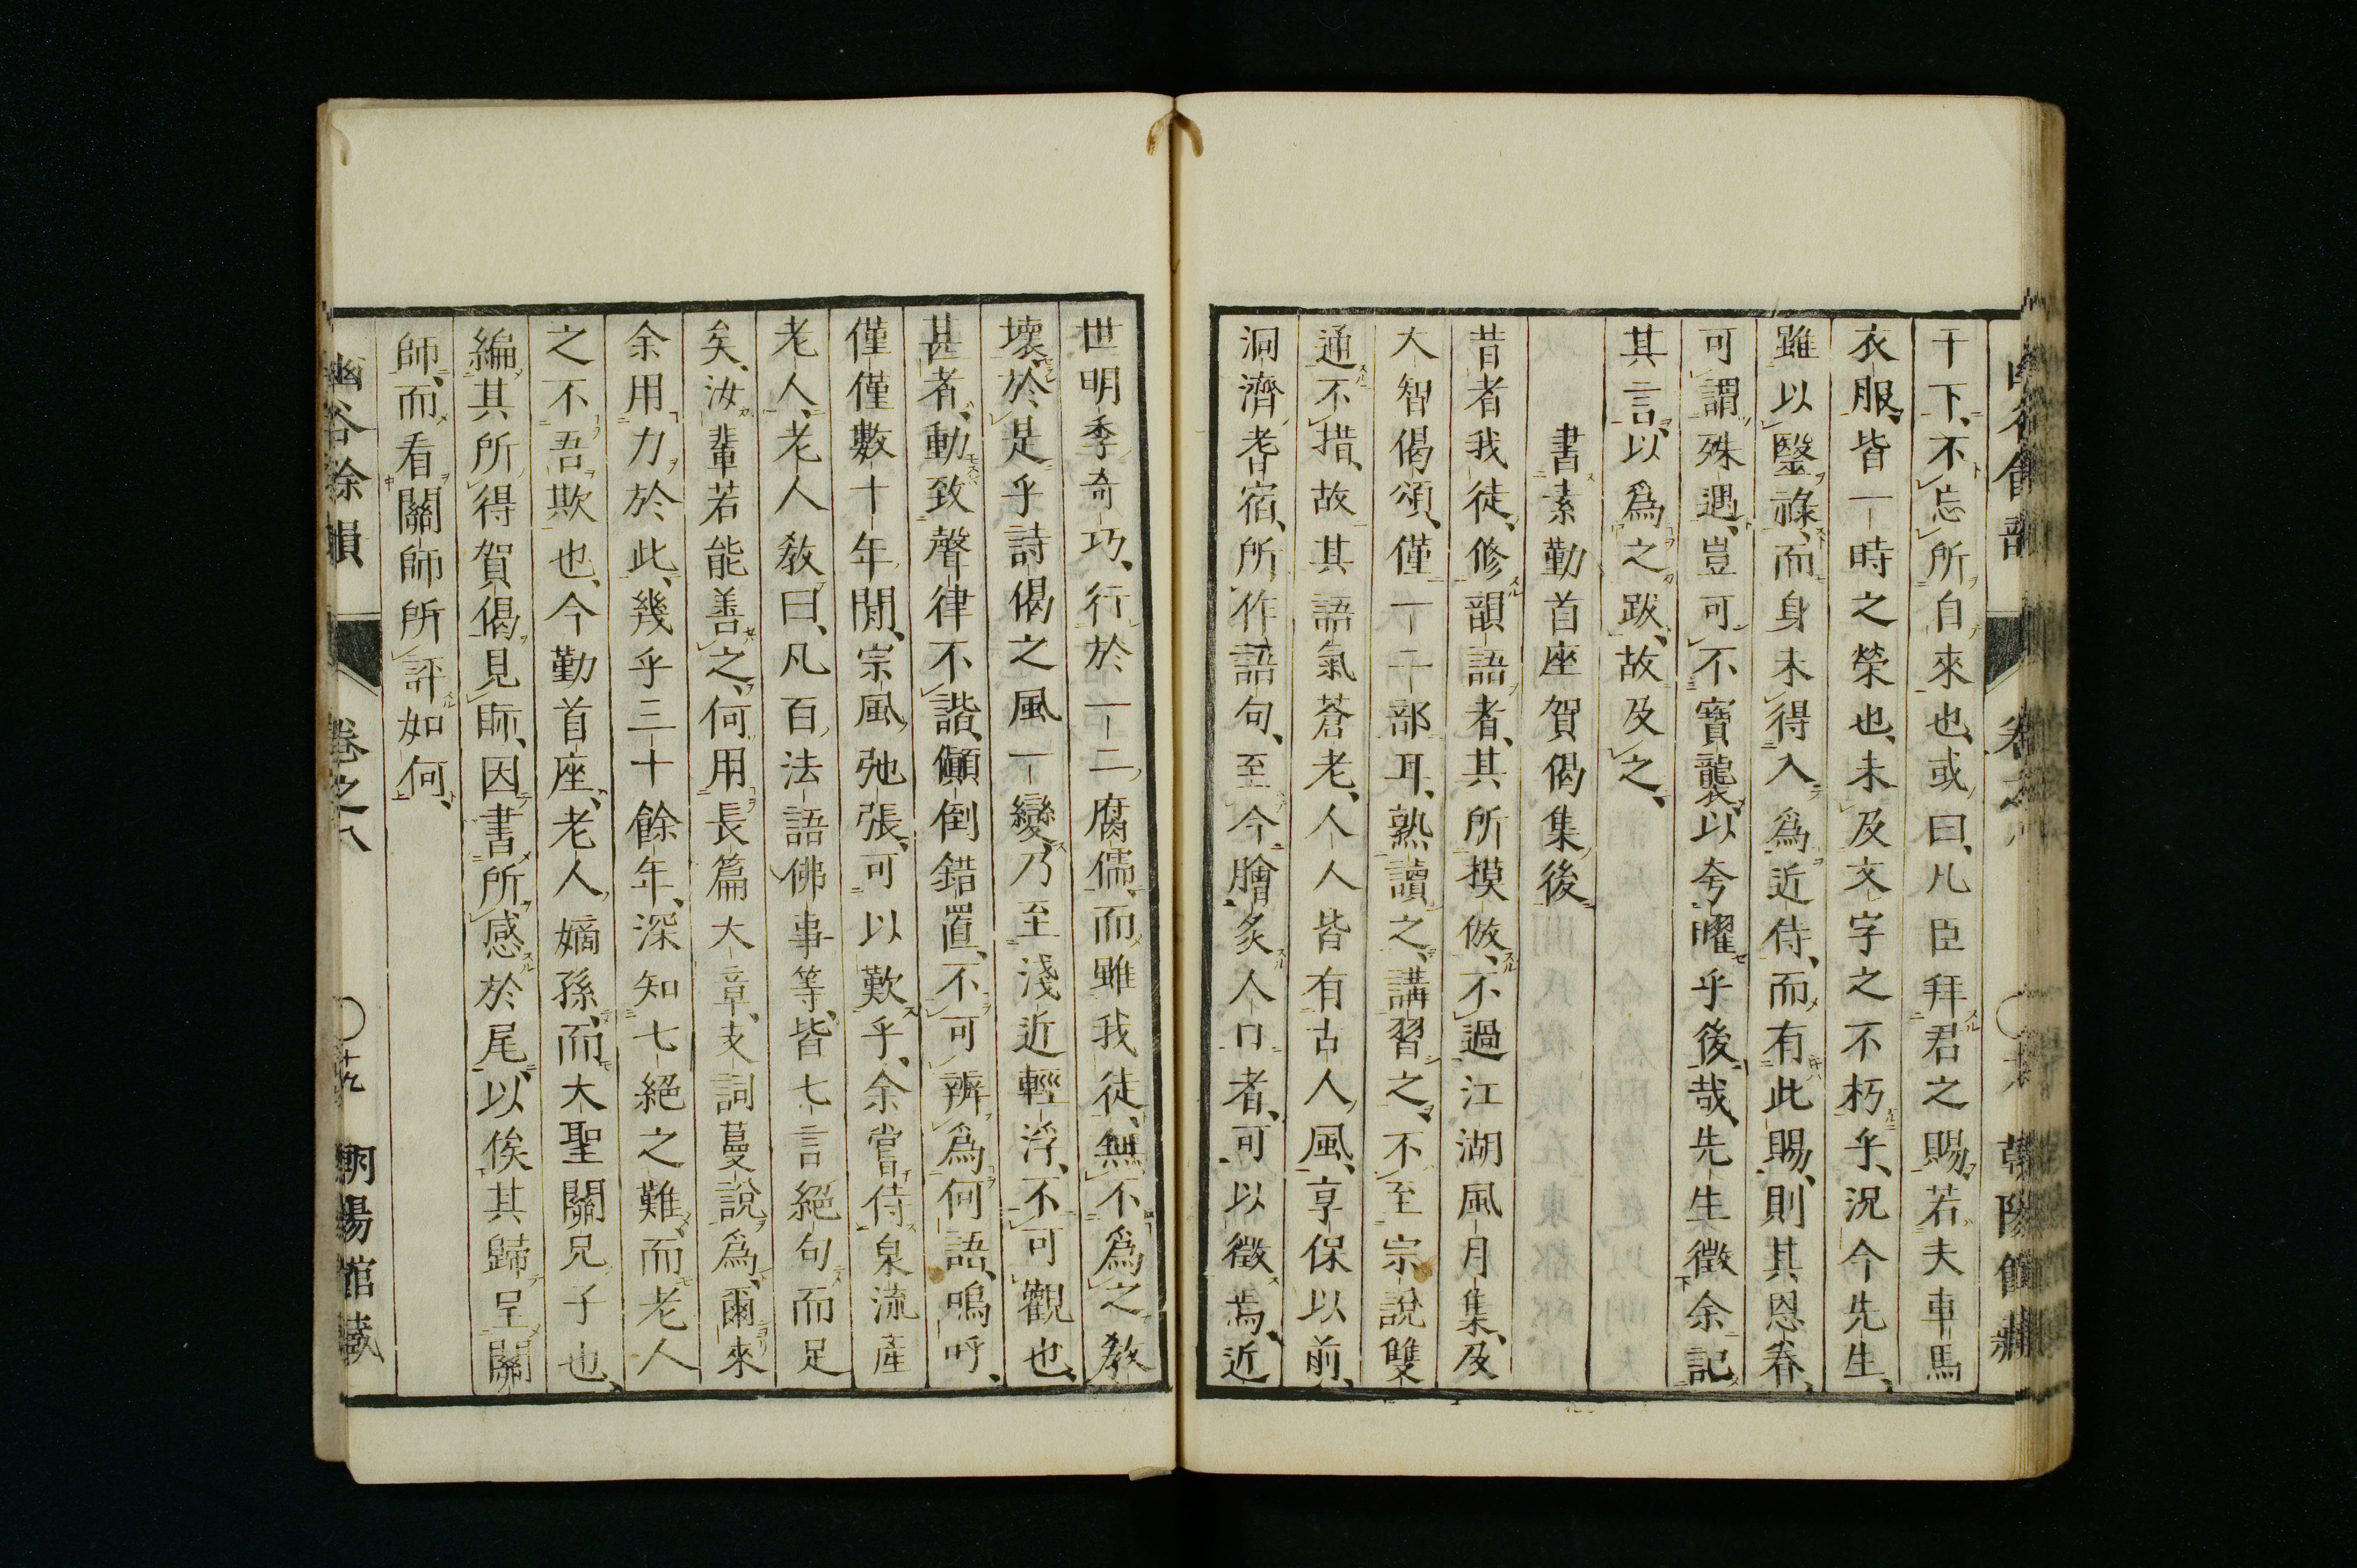 干下、不忘所自來也、或曰、凡臣拜君之賜、若夫車馬
衣服、皆一時之榮也、未及文字之不朽乎、況今先生、
雖以醫祿、而身未得入爲近侍、而有此賜、則其恩眷、
可謂殊遇、豈可不寶襲、以夸曜乎後哉、先生徵余記
其言、以爲之跋、故及之、
書素勤首座賀偈集後
昔者我徒、修韻語者、其所摸倣、不過江湖風月集、及
大智偈頌、僅一二部耳、熟讀之、講習之、不至宗說雙
通不措、故其語氣蒼老、人人皆有古人風、享保以前、
洞濟耆宿、所作語句、至今膾炙人口者、可以徵焉、近
世明季奇巧、行於一二腐儒、而雖我徒、無不爲之教
壞、於是乎詩偈之風一變、乃至淺近輕浮、不可觀也、
甚者、動致聲律不諧、顚倒錯置、不可辨爲何語、嗚呼、
僅僅數十年間、宗風弛張、可以歎乎、余嘗侍泉流產
老人、老人敎曰、凡百法語佛事等、皆七言絕句而足
矣、汝輩若能善之、何用長篇大章、支詞蔓說爲、爾來
余用力於此、幾乎三十餘年、深知七絕之難、而老人
之不吾欺也、今勤首座、老人嫡孫、而大聖關兄子也、
編其所得賀偈見眎、因書所感於尾、以俟其歸呈關
師、而看關師所評如何、
幽谷餘韻　卷之八　〇十九　朝陽館藏